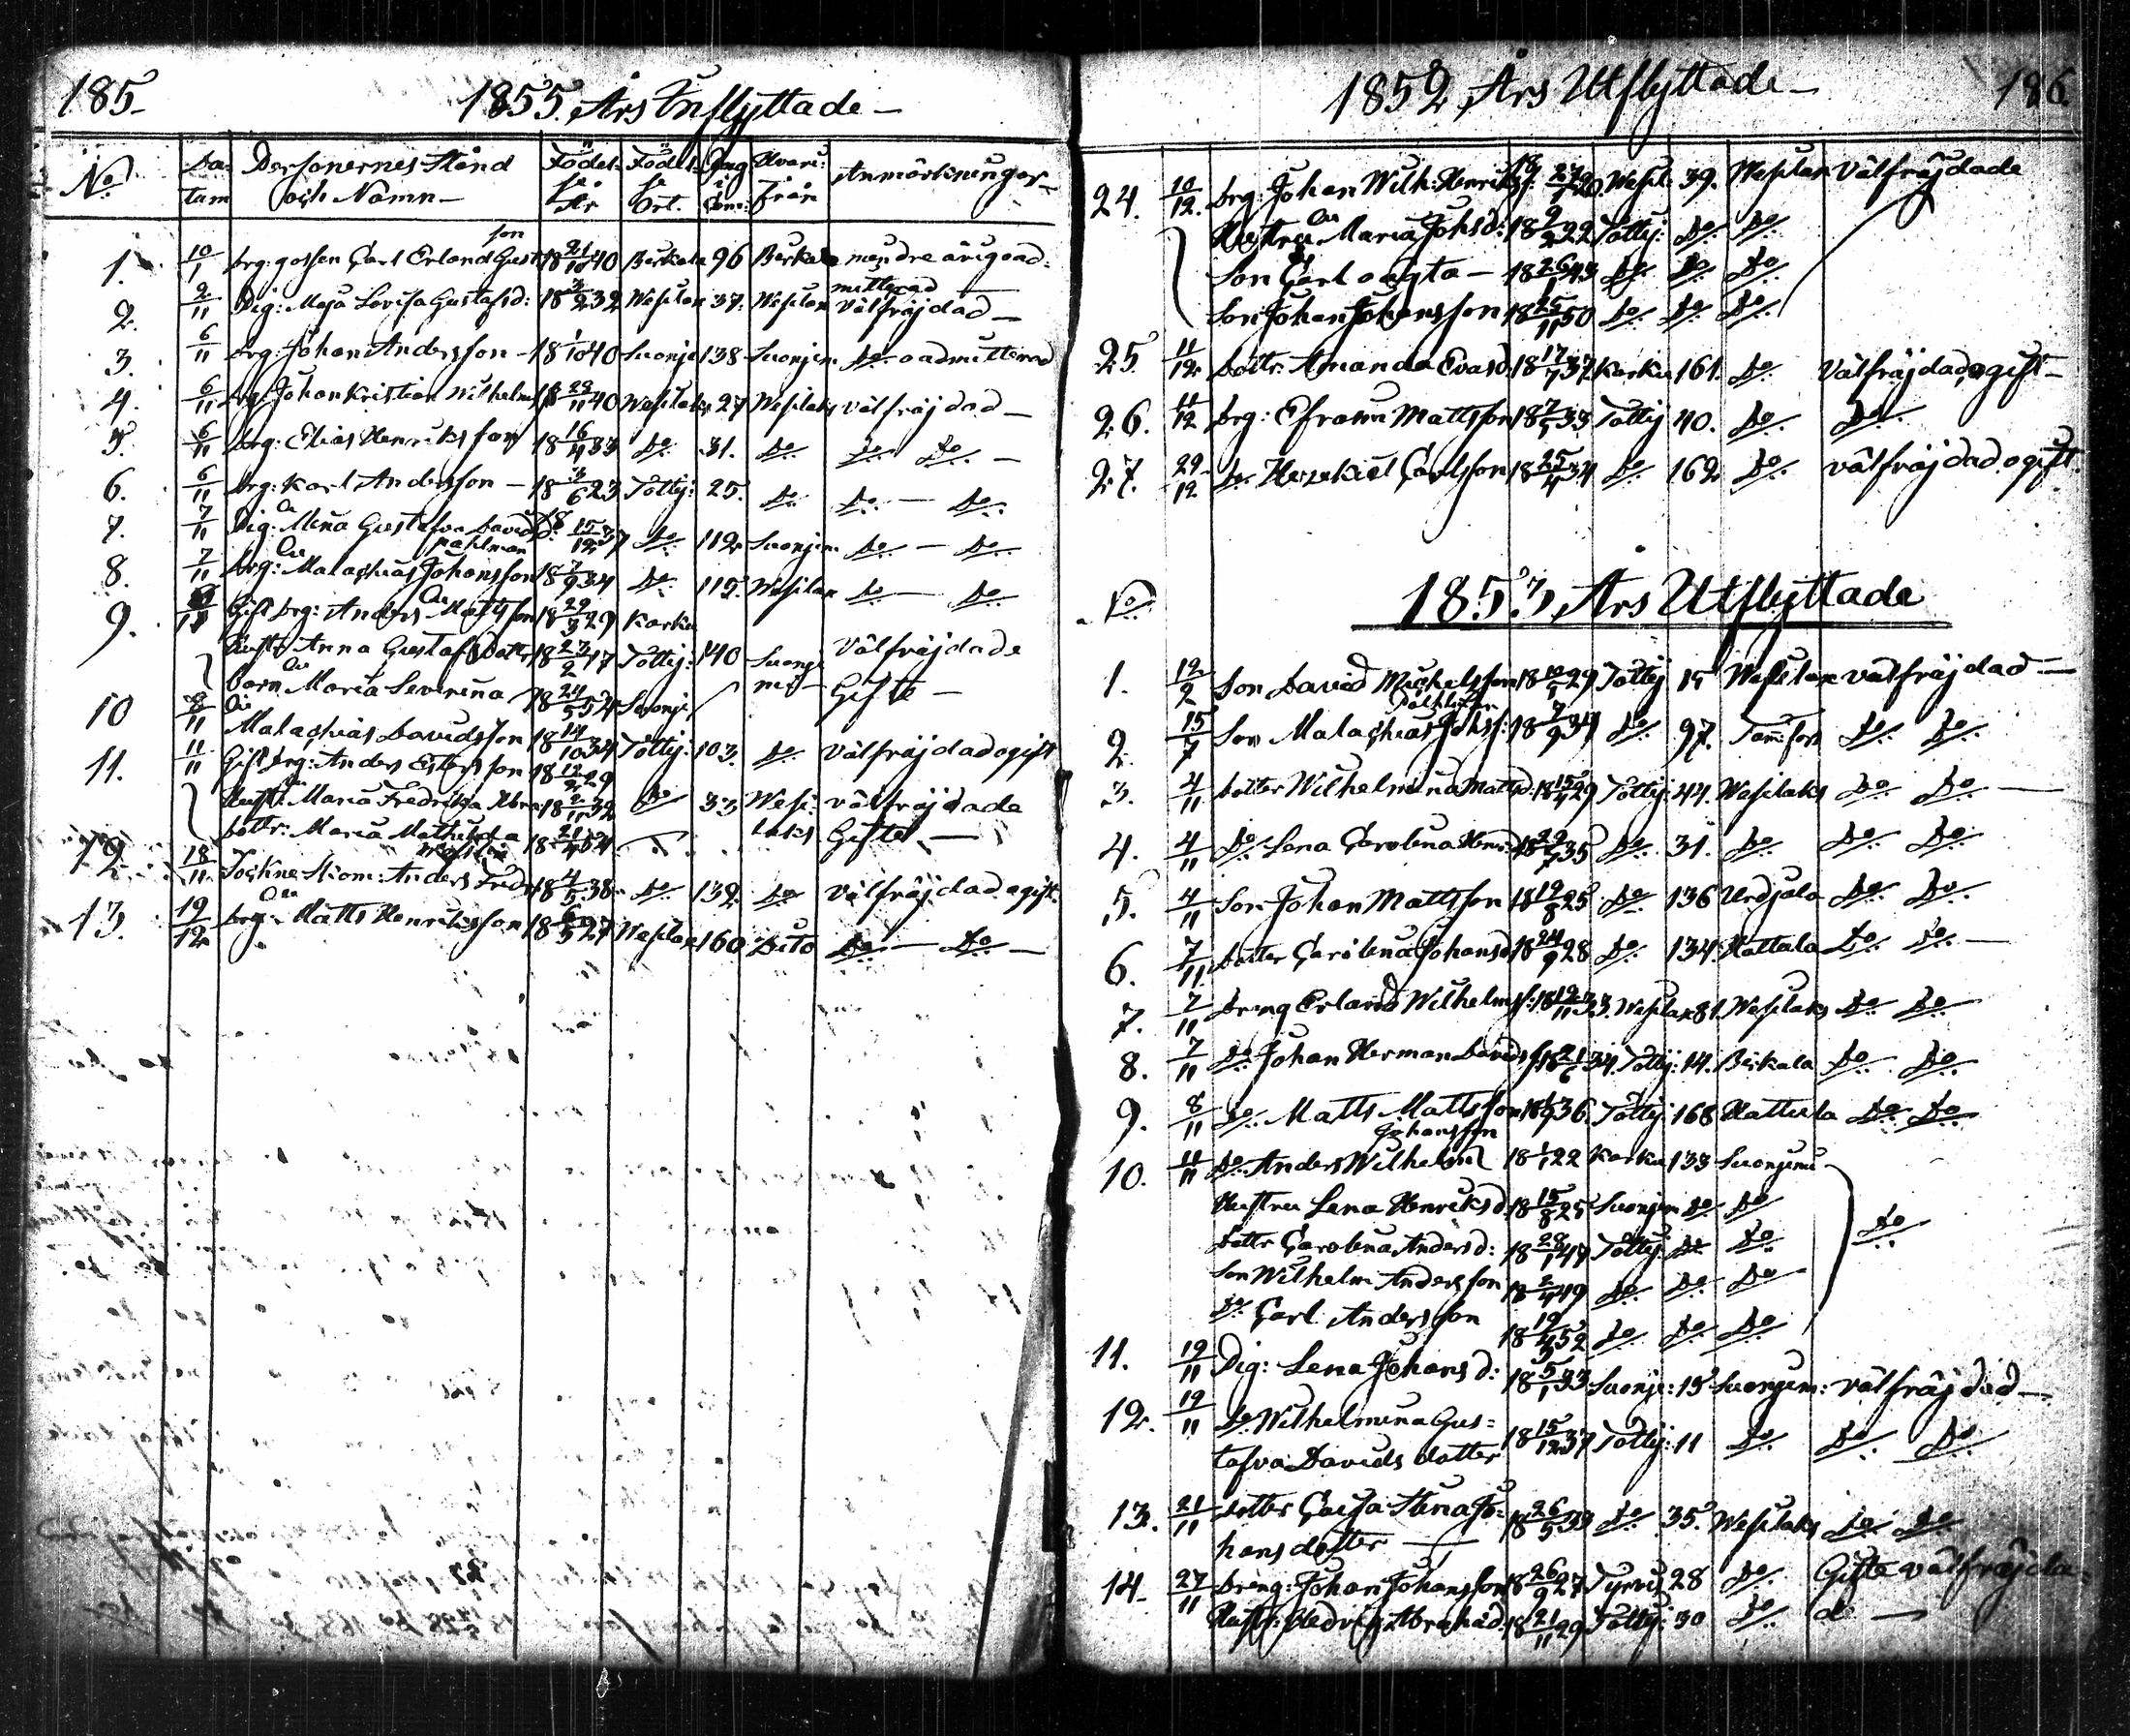 185.
1855. Års Inflyttade —
No
Da-
tum
Personernes Stånd
och Namn —
Födel-
se
År
Födel-
se
Ort.
Pag
i
Com:
Hvari-
från
Anmärkningar —
1. 10/1 drg: gossen Carl Erland Gust son 18 21/10 40 Birkala 96 Birkala mindre årig oad-
mitterad
2. 2/11 Pig: Maja Lovisa Gustafsd: 18 3/2 32 Wesilax 37. Wesilax Välfräjdad —
3. 6/11 drg: Johan Andersson — 18 1/10 40 Suonje 138 Suonjem Do oadmitterad
4. 6/11 drg: Johan Kristian Wilhelms 18 29/11 40 Wesilaks 27 Wesilaks välfräjdad —
5. 6/11 drg: Elias Henriksson 18 16/4 33 Do 31. Do Do Do —
6. 6/11 drg: Karl Andersson — 18 3/6 23 Tottij: 25. Do Do — Do
7. 7/11 Pig: Mina Gustafva Davidsd: 18 15/12 37 Do 112 Suonjem Do — Do
8. 7/11 drg: Malachias Johansson Pahlman 18 7/9 34 Do 115. Wesilax Do — Do
9. Gift drg: Anders Mattsson 18 29/3 29 Karku
Hustr Anna Gustafsdotter 18 23/2 17 Tottij: 140 Suonje Välfräjdade
barn Maria Severina 18 24/5 54 Suonje mi — Gifte —
10 8/11 Malachias Davidsson 18 14/10 34 Tottij: 103. Do Välfräjdad ogift
11. 11/11 Gift drg: Anders Estersson 18 12/2 29
Hustr: Maria Fredrika Abra 18 2/11 32 Do 33 Wesi- välfräjdade
dottr: Maria Mathilda 18 21/4 54 laks Gifte —
12. 18/11 Sockne Skom: Anders Fredr 18 4/5 38 Do 132. Do Välfräjdad ogift.
13. 19/12 drg: Matts Henriksson 18 27 Wesilax 160. Dito Do — Do —
1852 Års Utflyttade —
186.
24. 10/12. drg: Johan Wilh: Henriks 18 27/7 20. Wesil: 39. Wesilax Välfräjdade
Hustru Maria Johsd: 18 9/2 22 Tottij: Do Do
Son Carl oägta — 18 26/ 43 Do Do Do
Son Johan Johansson 18 25/11 50 Do Do Do
25. 11/12 dottr. Amanda Evasd 18 17/7 37 Karku 161. Do Välfräjdad ogift —
26. 11/12 drg: Efraim Mattsson 18 7/5 33. Tottij 40. Do Do
27. 29/12 Do Hezekiel Carlsson 18 25/4 34 Do 162 Do välfräjdad ogift.
No
1853 Års Utflyttade
1. 12/2 Son David Michelsson 18 10/5 29 Tottij 15 Wesilax välfräjdad —
2. 15/7 Son Malachias Johs: 18 7/9 34 Do 97. Tam̄fors Do Do
3. 4/11 dotter Wilhelmina Mattsd: 18 15/4 29 Tottij: 44. Wesilaks Do Do —
4. 4/11 Do Lena Carolina Henr: 18 22/7 35 Do 31. Do Do Do
5. 4/11 Son Johan Mattsson 18 19/8 25 Do 136 Urdjala Do Do
6. 7/11. dotter Carolina Johansd 18 24/9 28 Do 134. Hattala Do Do —
7. 7/11 dreng Erland Wilhelms: 18 19/11 33. Wesilax 81. Wesilaks Do Do
8. 7/11 Do Johan Herman Davidss 18 21/6 34. Tottij: 14. Birkala Do Do
9. 8/11 Do Matts Mattsson 18 36. Tottij: 168 Hattula Do Do
10. 11/11 Do Anders Wilhelm Johansson 18 1/1 22 Karku 133 Suonjemi
Hustru Lena Henriksd 18 15/8 25 Suonjem Do Do
dottr Carolina Andersd: 18 28/1 47 Tottij: Do Do Do
Son Wilhelm Andersson 18 2/4 49 Do Do Do
Do Carl Andersson 18 19/4 52 Do Do Do
11. 19/11 Pig: Lena Johansd: 18 5/1 33 Suonje: 15 Suonjem: välfräjdad —
12. 19/11 Do Wilhelmina Gus-
tafva Davids dotter 18 15/12 37 Tottij: 11 Do Do Do
13. 21/11 dotter Caisa Stina Jo-
hans dotter — 18 26/5 33 Do 35. Wesilaks Do Do
14. 27/11 dreng: Johan Johansson 18 26/9 27 Tyrvis 28 Do Gifte välfräjda-
Hustr: Hedvig Abrahad: 18 21/11 29 Tottij: 30 Do de —